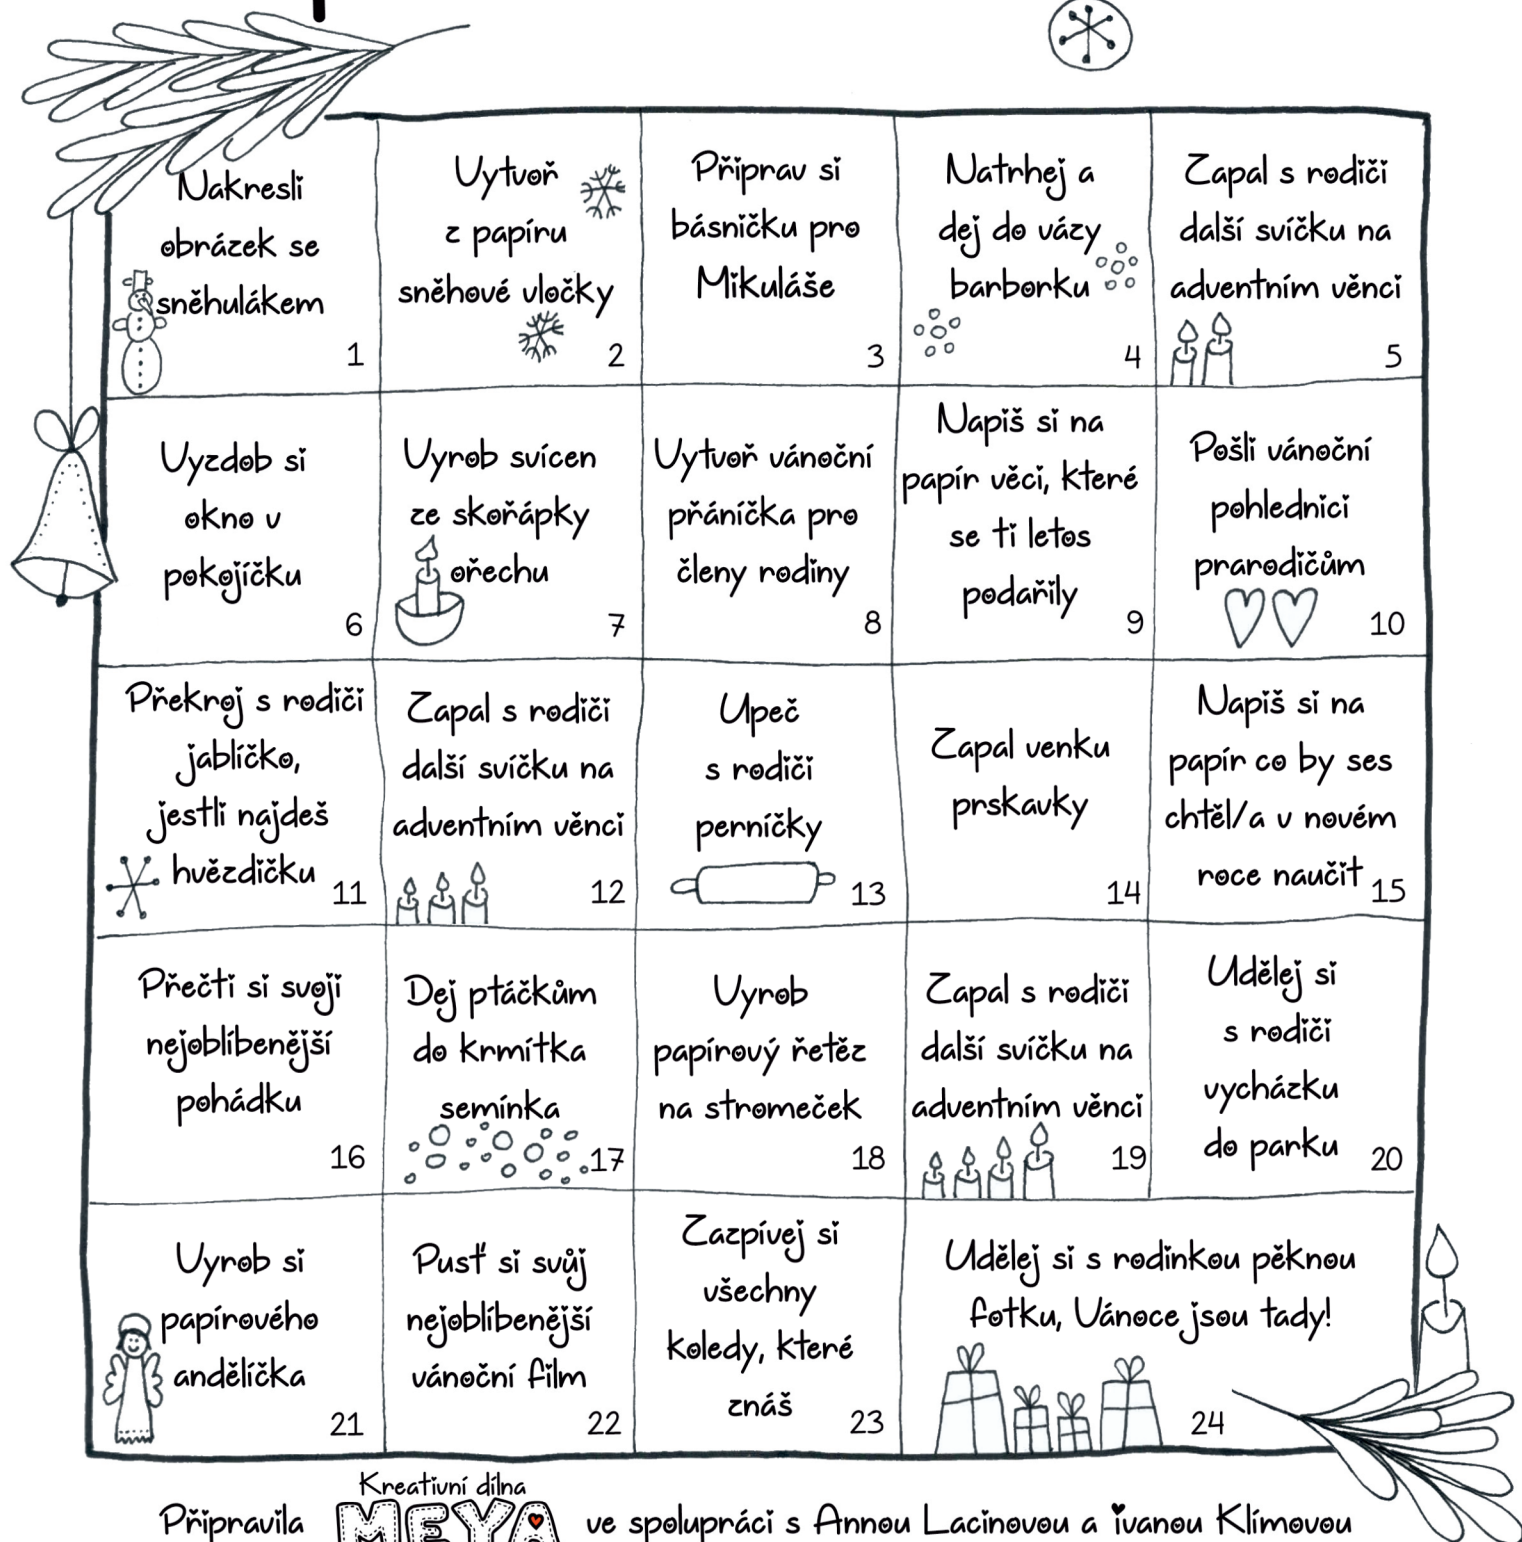 Nakresli
obrázek se
sněhulákem
1
Vytvoř
z papíru
sněhové vločky
2
Připrav si
básničku pro
Mikuláše
3
Natrhej a
dej do vázy
barborku
4
Zapal s rodiči
další svíčku na
adventním věnci
5
Vyzdob si
okno v
pokojíčku
6
Vyrob svícen
ze skořápky
ořechu
7
Vytvoř vánoční
přáníčka pro
členy rodiny
8
Napiš si na
papír věci, které
se ti letos
podařily
9
Pošli vánoční
pohlednici
prarodičům
10
Překroj s rodiči
jablíčko,
jestli najdeš
hvězdičku
11
Zapal s rodiči
další svíčku na
adventním věnci
12
Upeč
s rodiči
perníčky
13
Zapal venku
prskavky
14
Napiš si na
papír co by ses
chtěl/a v novém
roce naučit
15
Přečti si svoji
nejoblíbenější
pohádku
16
Dej ptáčkům
do krmítka
semínka
17
Vyrob
papírový řetěz
na stromeček
18
Zapal s rodiči
další svíčku na
adventním věnci
19
Udělej si
s rodiči
vycházku
do parku
20
Vyrob si
papírového
andělíčka
21
Pusť si svůj
nejoblíbenější
vánoční film
22
Zazpívej si
všechny
koledy, které
znáš
23
Udělej si s rodinkou pěknou
fotku, Vánoce jsou tady!
24
Kreativní dílna
Připravila MEYA ve spolupráci s Annou Lacinovou a Ivanou Klímovou